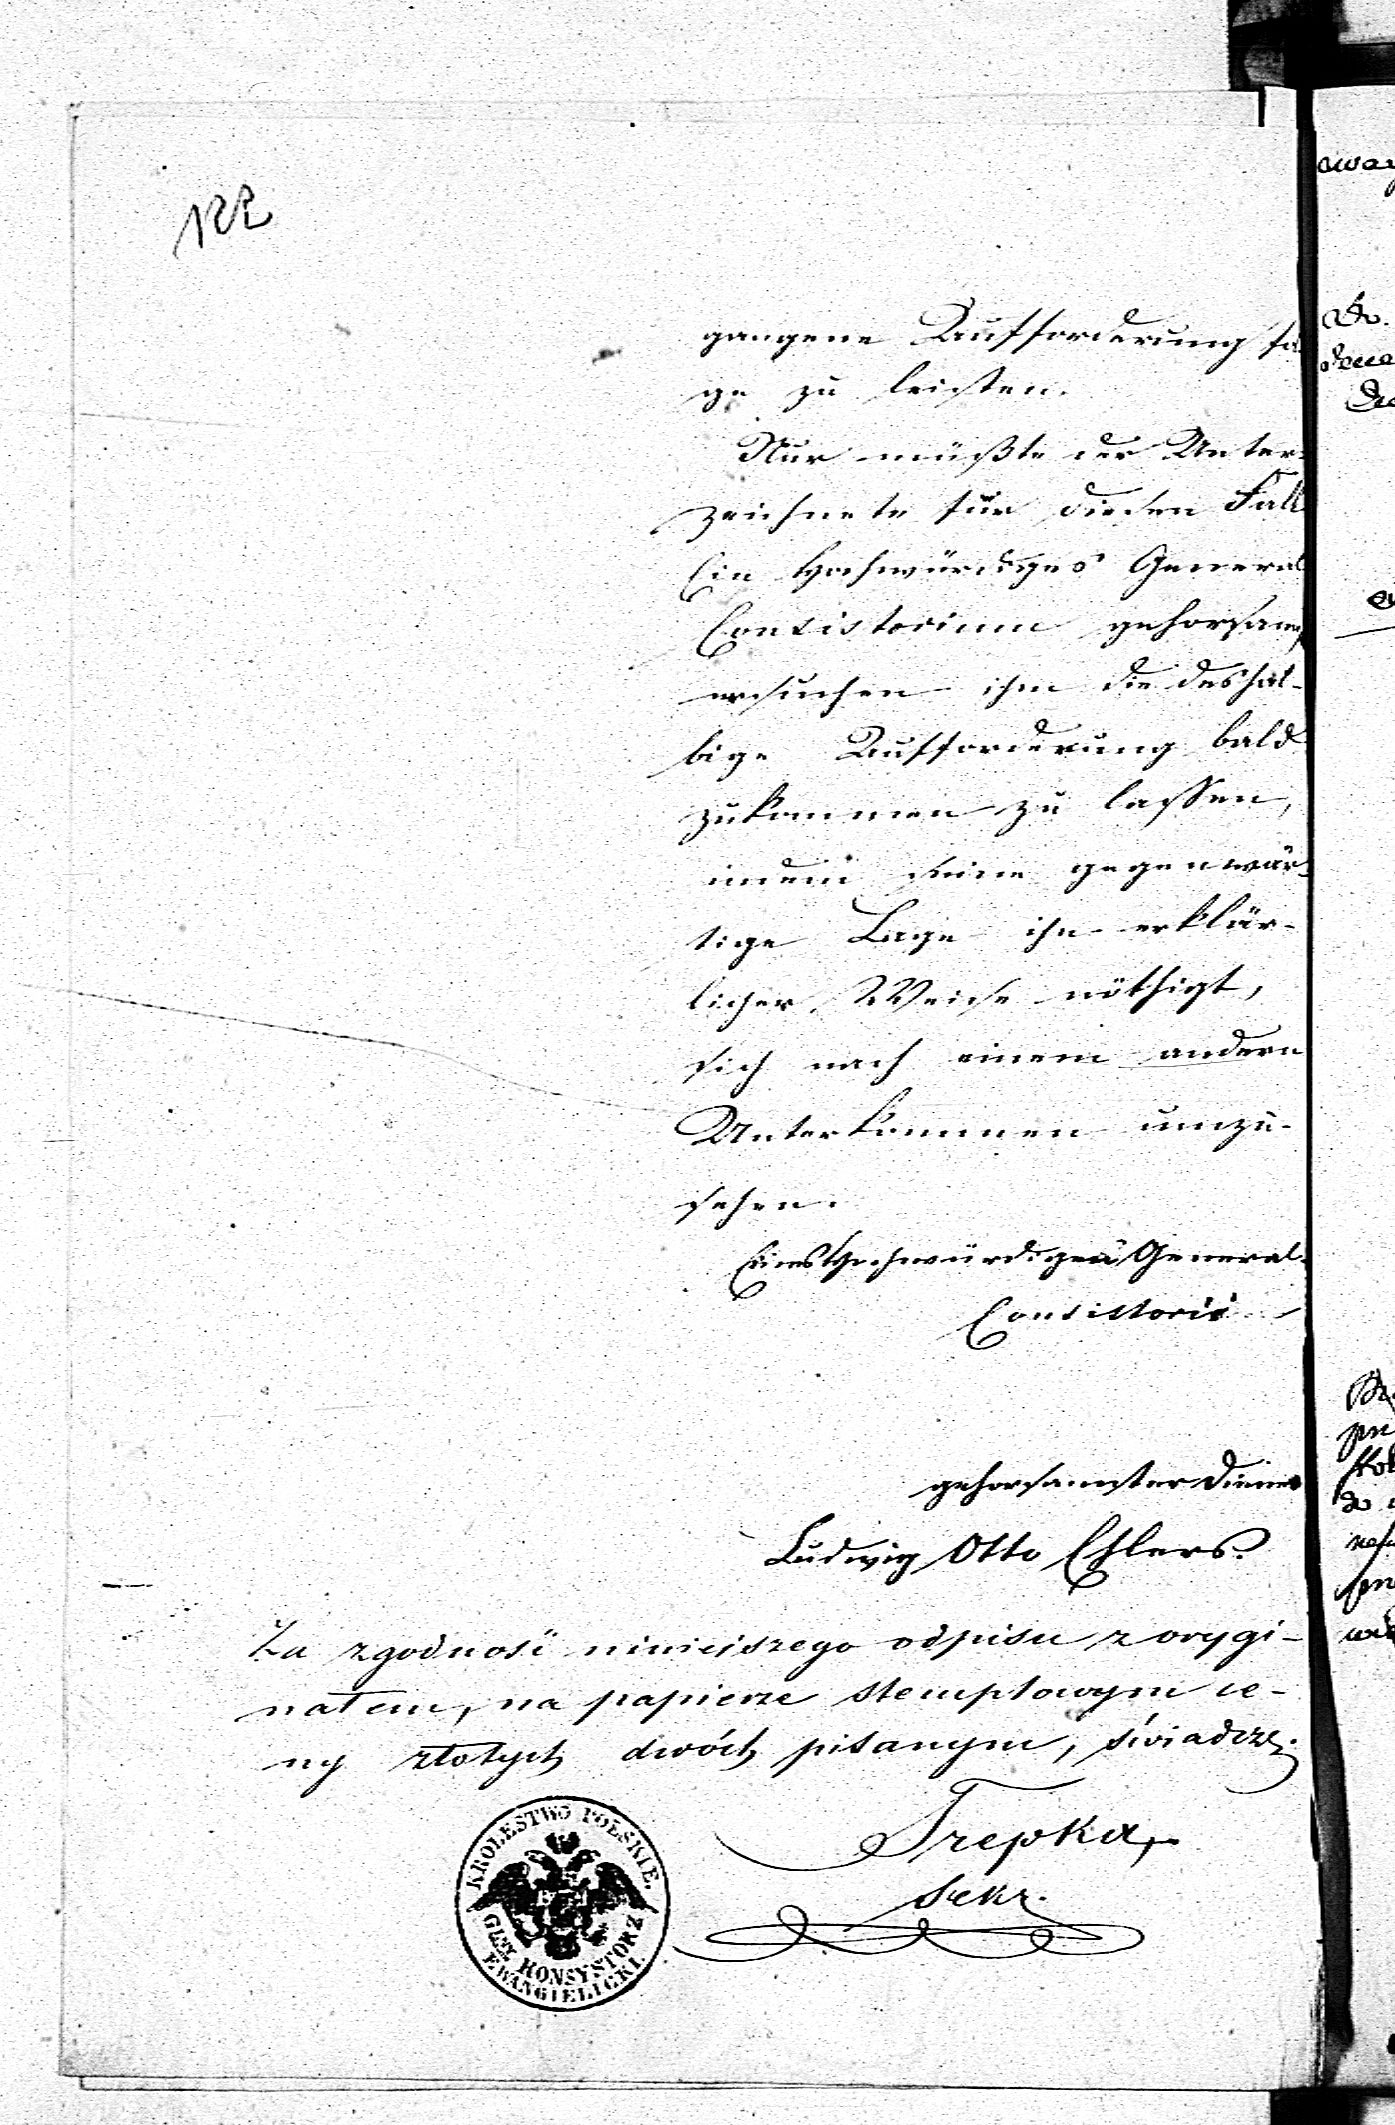 122
gangene Aufforderung fol
ge zu leisten.
Nur müßte der Unter-
zeichnete für diesen Fall
Ein Hochwürdiges General
Consistorium gehorsamst
ersuchen ihm die deshal-
bige Aufforderung bald
zukommen zu lassen,
indem seine gegenwär-
tige Lage ihn erklär-
licher Weise nöthigt,
sich nach einem andern
Unterkommen umzu-
sehen.
Eines Hochwürdigen General-
Consistorii
gehorsamster Diener
Ludwig Otto Ehlers.
Za zgodność niniejszego odpisu z orygi-
nałem, na papierze stemplowym ce-
ny złotych dwóch pisanym, świadczę.
Trepka,
Sekr.
KROLESTWO POLSKIE.
GLNY KONSYSTORZ
EWANGIELICKI